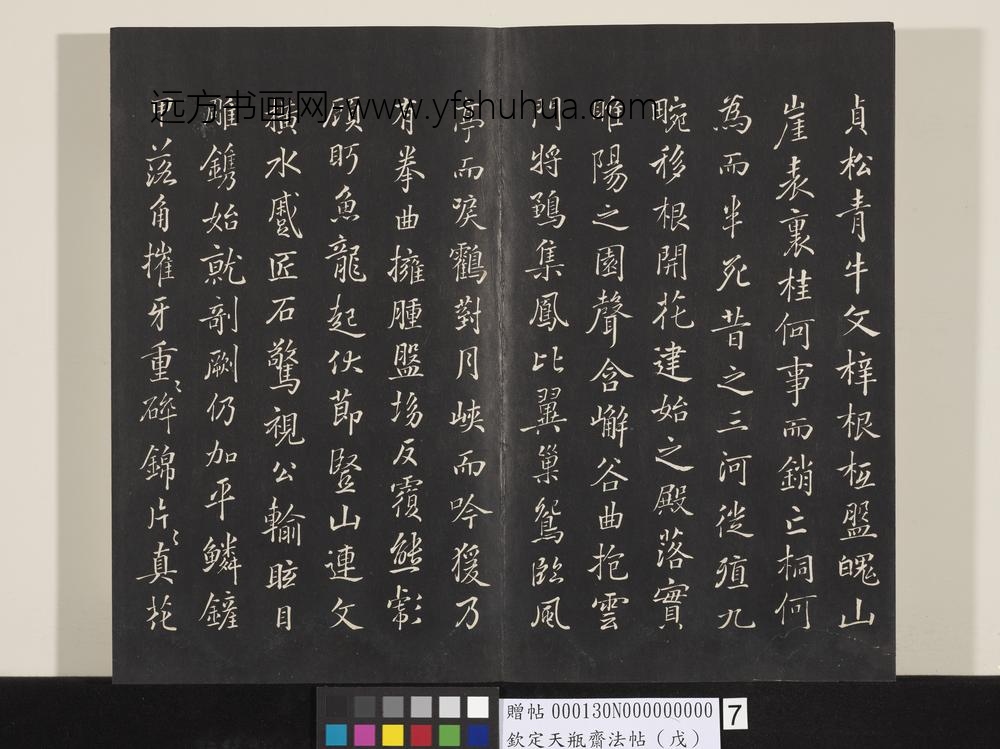 貞松青牛文梓根柢盤魄山
崖表裏桂何事而銷亡桐何
為而半死昔之三河徙殖九
畹移根開花建始之殿落實
睢陽之園聲含嶰谷曲抱雲
門將鶵集鳳比翼巢鴛臨風
亭而唳鶴對月峽而吟猨乃
有拳曲擁腫盤坳反覆熊彪
顧盻魚龍起伏節竪山連文
橫水蹙匠石驚視公輸眩目
雕鐫始就剞劂仍加平鱗鏟
甲落角摧牙重〻碎錦片〻真花
远方书画网-www.yfshuhua.com
贈帖 000130N000000000
欽定天瓶齋法帖（戊）
7